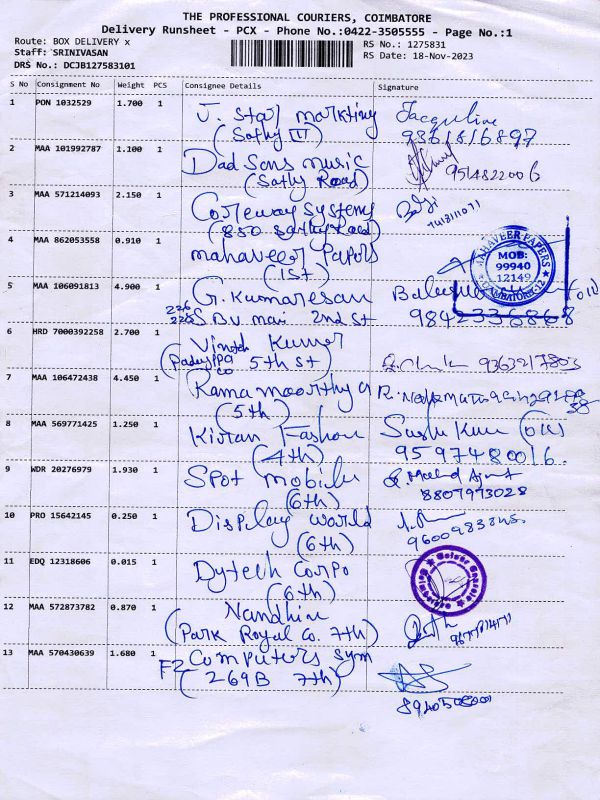 THE PROFESSIONAL COURIERS, COIMBATORE
Delivery Runsheet - PCX - Phone No.:0422-3505555 - Page No.:1
Route: BOX DELIVERY x
RS No.: 1275831
Staff: SRINIVASAN
RS Date: 18-Nov-2023
DRS No.: DCJB127583101
S No Consignment No Weight PCS Consignee Details Signature
1 PON 1032529 1.700 1 J. Star markting Jacquline
(Sathy III) 9361816897
2 MAA 101992787 1.100 1 Dad Sons music
(Sathy Road) 9514822006
3 MAA 571214093 2.150 1 Coreway Systems
(850 Sathy Road)
4 MAA 862053558 0.910 1 mahaveer Papers
(1st)
MAHAVEER PAPERS
MOB:
99940
12149
COIMBATORE-12
5 MAA 106091813 4.900 1 G. Kumaresan
226 S.B.V mai 2nd St 9842336868
6 HRD 7000392258 2.700 1 Vinoth Kumar
(Paduyppa co 5th St 9363217803
7 MAA 106472438 4.450 1 Rama moorthy G
(5th)
8 MAA 569771425 1.250 1 Kiran Fashion
(4th) 9597480016.
9 WDR 20276979 1.930 1 Spot mobile
(6th) 8807973028
10 PRO 15642145 0.250 1 Display World
(6th)
11 EDQ 12318606 0.015 1 Dytech Corpo
(6th)
12 MAA 572873782 0.870 1 Nandhini
(Park Royal Co. 7th)
13 MAA 570430639 1.680 1 F2 Computers Sym
(269B 7th)